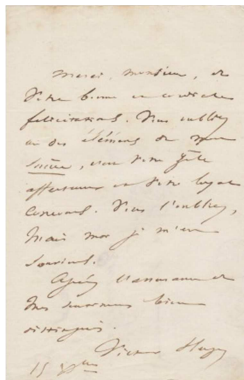 Merci, monsieur, de
votre bonne et cordiale
félicitation. Vous oubliez
un des éléments de mon
succès, c'est votre
affectueux et votre loyal
concours. Vous l'oubliez,
mais moi je m'en
souviens.
l'assurance de
mes sentiments bien
distingués.
Victor Hugo
15 Xbre